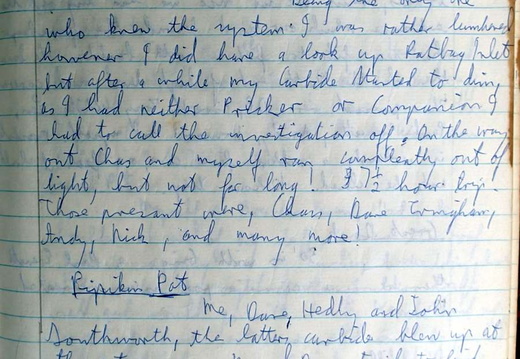 being the only one
who knew the system. I was rather lumbered
however I did have a look up Ratbag Inlet
but after a while my Carbide started to dim,
as I had neither Pricker or Companion I
had to call the investigation off. On the way
out Chas and myself ran compleatly out of
light, but not for long! 7½ hour trip.
Those present were, Chas, Dave Irmgham,
Andy, Nick, and many more!
Pipikin Pot
Me, Dave, Hedly and John
Southworth, the latters carbide blew up at